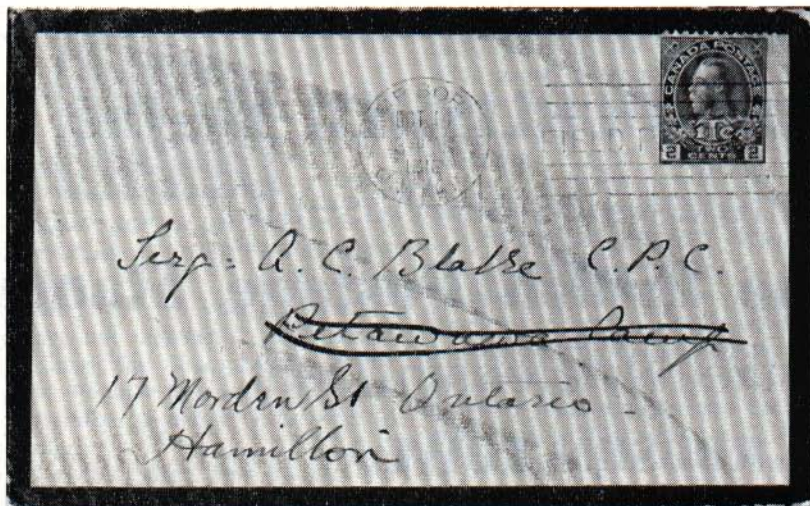 CANADA POSTAGE
1Tc
2 TWO CENTS 2
FIELD
Serg= A. C. Blake C.P.C.
Petawawa Camp
17 Morden St Ontario -
Hamilton